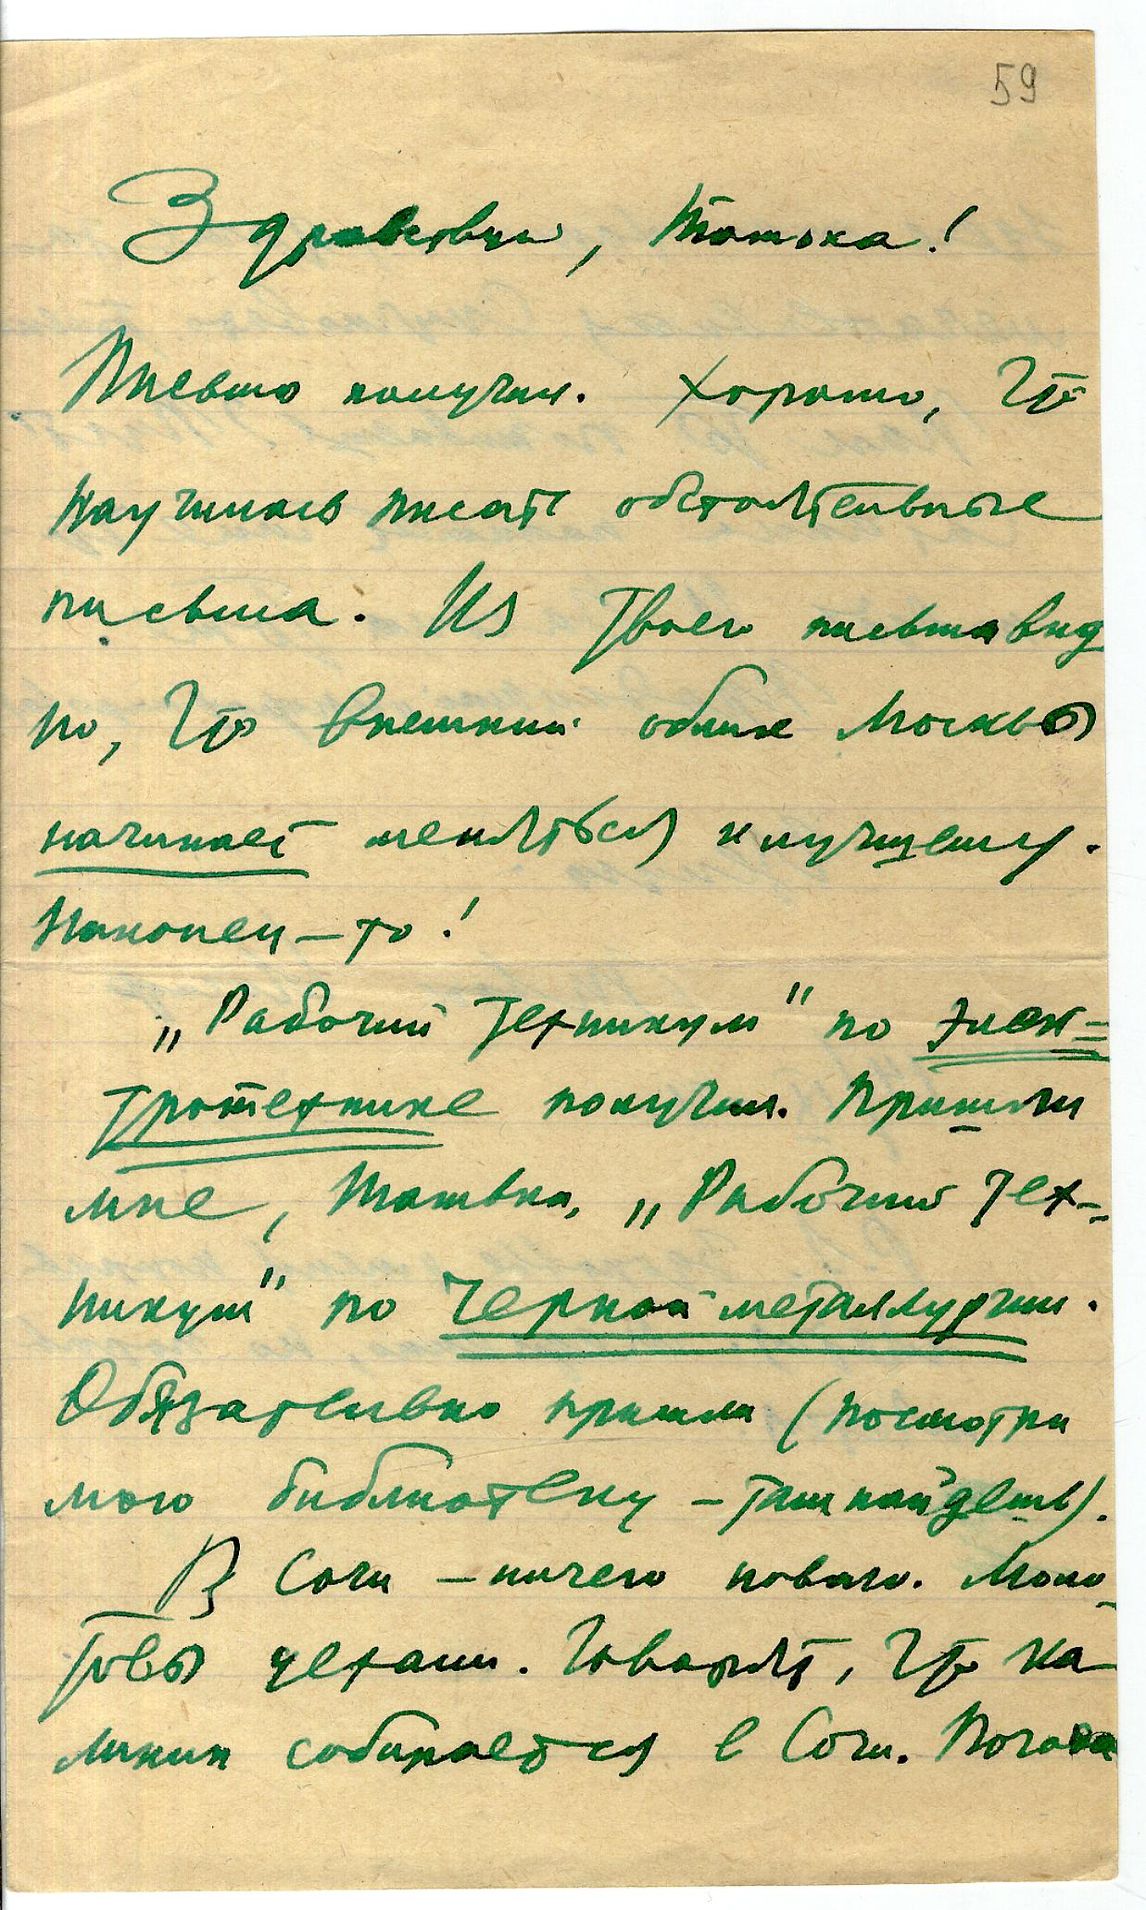 59
Здравствуй, Татька!
Письмо получил. Хорошо, что
научилась писать обстоятельные
письма. Из твоего письма вид
но, что внешний облик Москвы
начинает меняться к лучшему.
Наконец–то!
„Рабочий техникум" по элек=
тротехнике получил. Пришли
мне, Татька, „Рабочий тех-
никум" по черной металлургии.
Обязательно пришли (посмотри
мою библиотеку – там найдешь).
В Сочи – ничего нового. Моло-
товы уехали. Говорят, что Ка-
линин собирается в Сочи. Погода